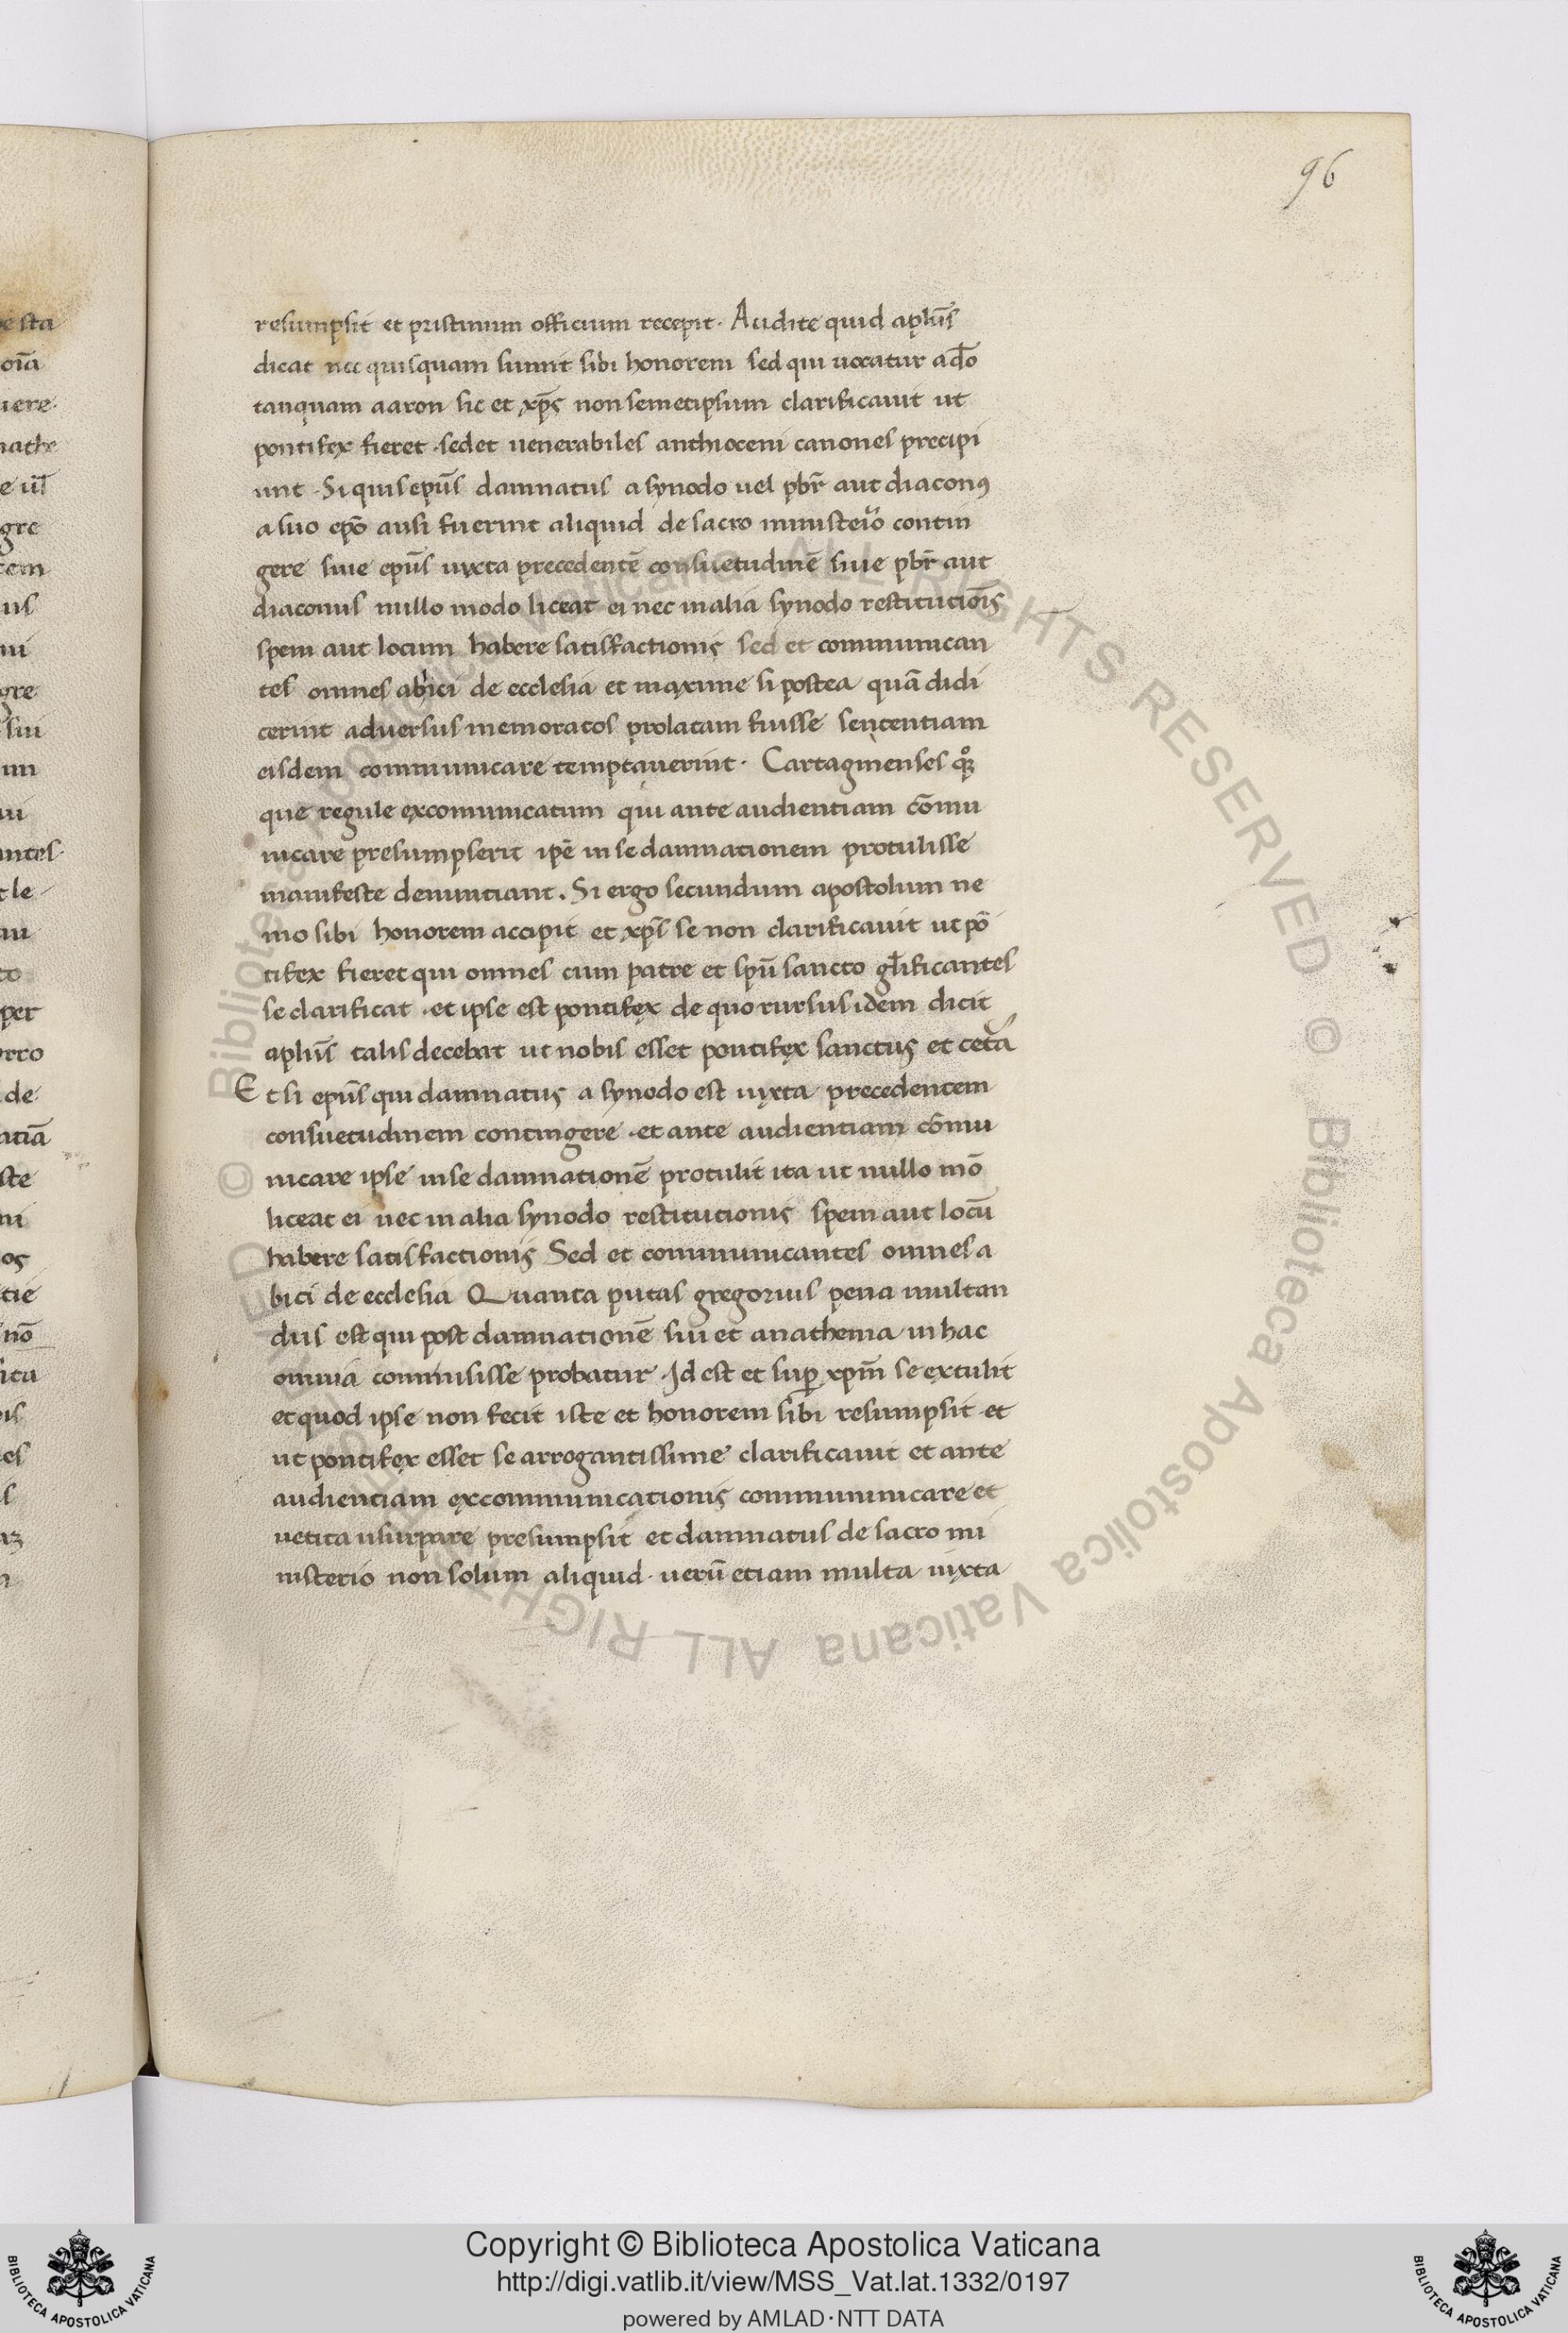 96
resumpsit et pristinum officium recepit. Audite quid aplūs
dicat nec quisquam sumit sibi honorem sed qui vocatur a dō
tanquam aaron sic et xp̄s non semetipsum clarificavit ut
pontifex fieret . sed et uenerabiles anthioceni canones precipi
unt . Si quis epūs damnatus a synodo uel pbr̄ aut diaconꝰ
a suo epō ausi fuerint aliquid de sacro ministerio contin
gere siue epūs iuxta precedentē consuetudinē siue pbr̄ aut
diaconus nullo modo liceat ei nec in alia synodo restitutiōis
spem aut locum habere satisfactionis sed et communican
tes omnes abici de ecclesia et maxime si postea quā didi
cerint aduersus memoratos prolatam fuisse sententiam
eisdem communicare temptauerint . Cartaginenses
que regule excomunicatum qui ante audientiam cōmu
nicare presumpserit ipē in se damnationem protulisse
manifeste denuntiant . Si ergo secundum apostolum ne
mo sibi honorem accipit et xp̄s se non clarificauit ut pō
tifex fieret qui omnes cum patre et spū sancto gl̄ificantes
se clarificat . et ipse est pontifex de quo rursus idem dicit
aplūs talis decebat ut nobis esset pontifex sanctus et cetā
Et si epūs qui damnatus a synodo est iuxta precedentem
consuetudinem contingere . et ante audientiam cōmu
nicare ipse in se damnationē protulit ita ut nullo mō
liceat ei nec in alia synodo restitutionis spem aut locū
habere satisfactionis Sed et communicantes omnes a
bici de ecclesia Quanta putas gregorius pena multan
dus est qui post damnationē sui et anathema in hac
omnia commisisse probatur . Id est et sup̱ xpm̄ se extulit
et quod ipse non fecit iste et honorem sibi resumpsit et
ut pontifex esset se arrogantissime clarificauit et ante
audientiam excommunicationis communicare et
uetita usurpare presumpsit et damnatus de sacro mi
nisterio non solum aliquid . uerū etiam multa iuxta
Copyright © Biblioteca Apostolica Vaticana
http://digi.vatlib.it/view/MSS_Vat.lat.1332/0197
powered by AMLAD·NTT DATA
BIBLIOTECA APOSTOLICA VATICANA
BIBLIOTECA APOSTOLICA VATICANA